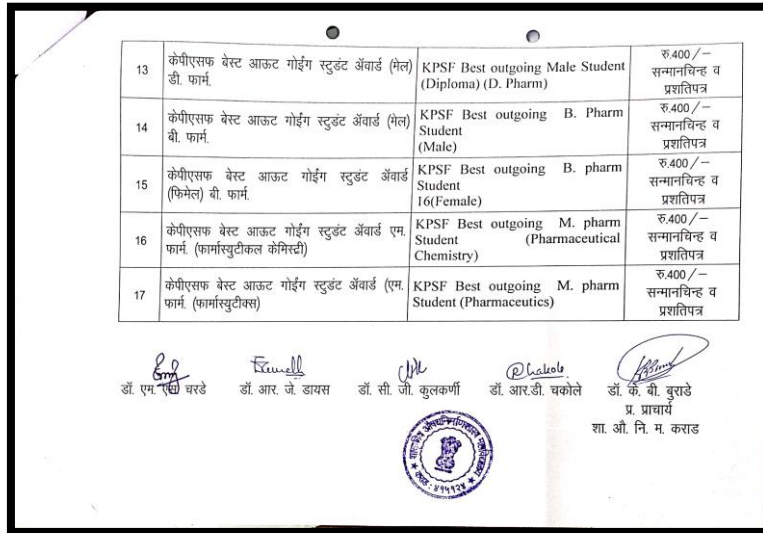 13
केपीएसफ बेस्ट आऊट गोईंग स्टुडंट ॲवार्ड (मेल)
डी. फार्म.
KPSF Best outgoing Male Student
(Diploma) (D. Pharm)
रु.400/–
सन्मानचिन्ह व
प्रशतिपत्र
14
केपीएसफ बेस्ट आऊट गोईंग स्टुडंट ॲवार्ड (मेल)
बी. फार्म.
KPSF Best outgoing B. Pharm
Student
(Male)
रु.400/–
सन्मानचिन्ह व
प्रशतिपत्र
15
केपीएसफ बेस्ट आऊट गोईंग स्टुडंट ॲवार्ड
(फिमेल) बी. फार्म.
KPSF Best outgoing B. pharm
Student
16(Female)
रु.400/–
सन्मानचिन्ह व
प्रशतिपत्र
16
केपीएसफ बेस्ट आऊट गोईंग स्टुडंट ॲवार्ड एम.
फार्म. (फार्मास्युटीकल केमिस्टी)
KPSF Best outgoing M. pharm
Student (Pharmaceutical
Chemistry)
रु.400/–
सन्मानचिन्ह व
प्रशतिपत्र
17
केपीएसफ बेस्ट आऊट गोईंग स्टुडंट ॲवार्ड (एम.
फार्म. (फार्मास्युटीक्स)
KPSF Best outgoing M. pharm
Student (Pharmaceutics)
रु.400/–
सन्मानचिन्ह व
प्रशतिपत्र
डॉ. एम. एस चरडे
डॉ. आर. जे. डायस
डॉ. सी. जी. कुलकर्णी
डॉ. आर.डी. चकोले
डॉ. के. बी. बुराडे
प्र. प्राचार्य
शा. औ. नि. म. कराड
कराड : ४१५१२४